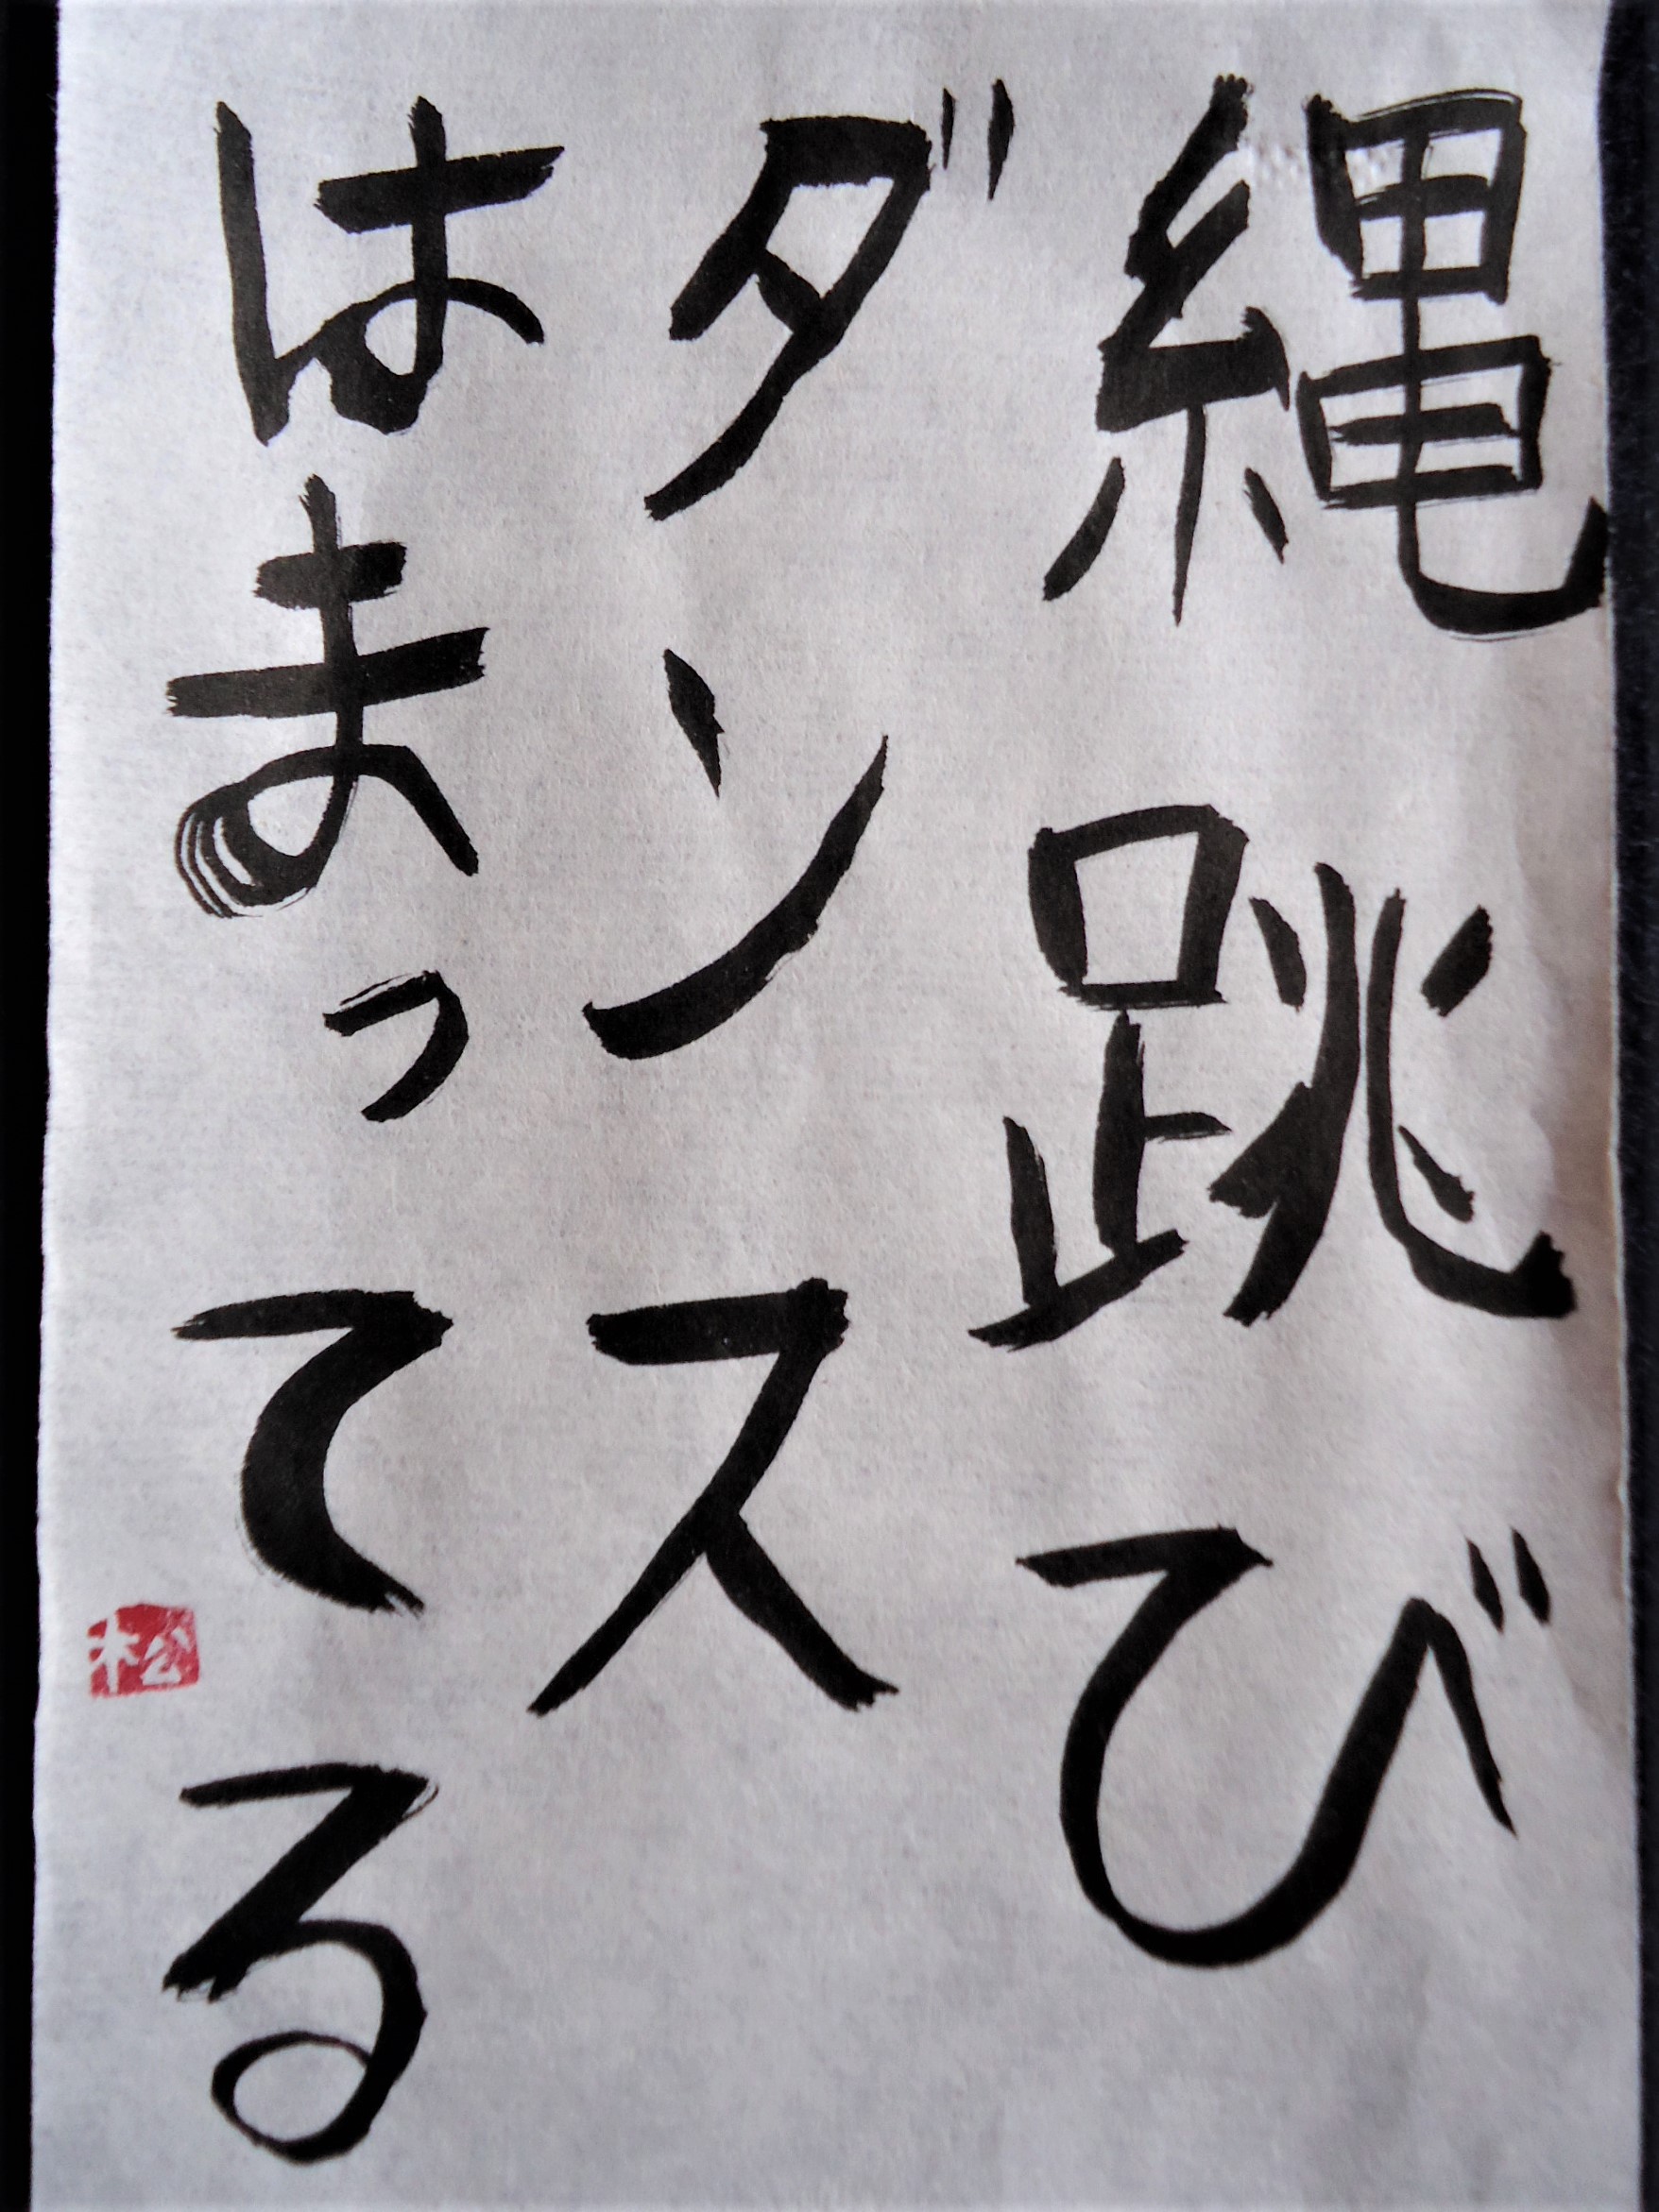 縄跳び
ダンス
はまってる
松